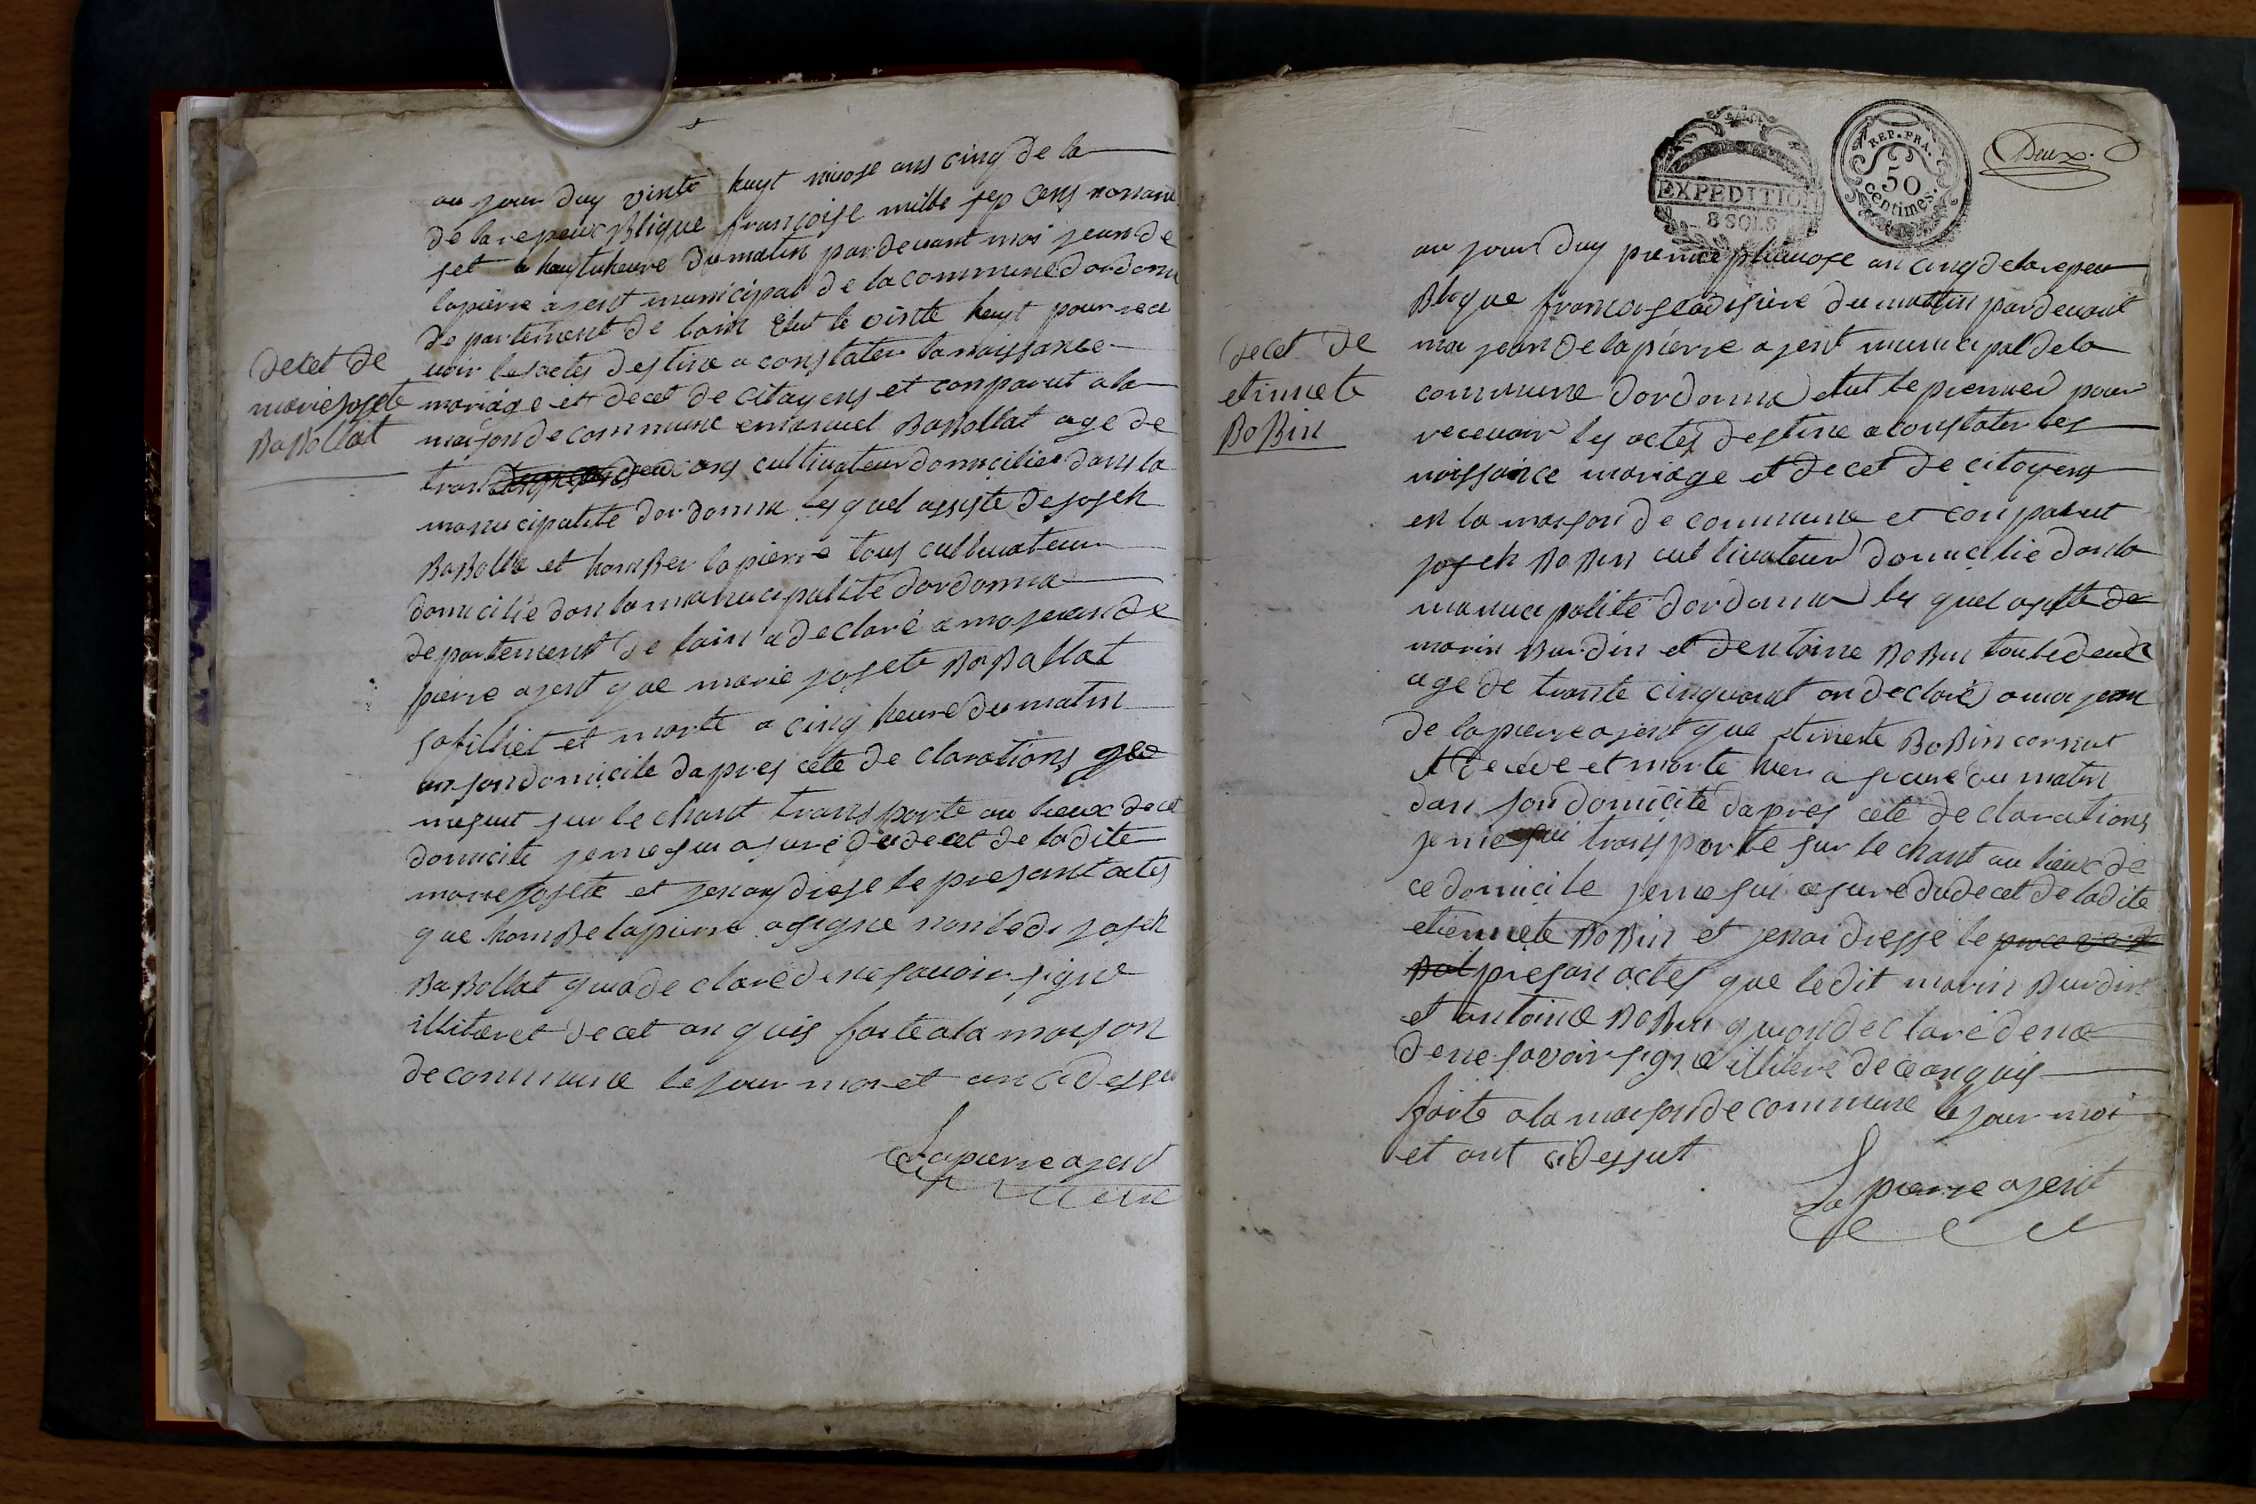 decet de
marie josete
BaBollat
au jour duy vinte huyt nivose ans cinq de la
de la repeux Blique francoise mille sep cens nonant
set a huyt uheure du matin par devant moi jean de
lapierre ajent municipal de la commune dordonna
departement de lain Elut le vinte huyt pour rece
voir les actes destine a constater la naissance
mariage et decet de citoyens et comparut a la
maison de commune emanuel BaBollat age de
ans cultivateur domicilier dans la
manucipalite dordonna les quel assiste de josek
BaBolla et homBer lapierre tous cultivateur
domicilie dan la manucipalite dordonna
departement de lain a declaré a moi jean de
pierre ajent que marie josete BaBallat
sa filliet et morte a cinq heure du matin
en son domicile dapres cete declarations
me sut sur le chant transporte au lieux de ce
domicile je me sui asure du decet de la dite
marie josete et jen ay drese le presant actes
que homBe lapierre a signe non le di josek
BaBollat qui a declare de ne savoir signe
illiteret de cet anquis faite a la maison
de commune le jour moi et an ci desu
Lapierre ajent
EXPEDITION
8 SOLS
REP. FRA.
50
centimes.
Deux.
decet de
etinnete
BoBin
au jour duy premie pluviose an cinq de la repeu
Blique francaise a disieure du mattin par devant
moi jean de lapierre ajent municipal de la
commune dordonna elut le premier pour
recevoir les actes destine a constater les
naissance mariage et decet de citoyens
en la maison de commune et comparut
josek BoBin cultivateur domicilie dan la
manucipalite dordonna les quel asiste de
marin Burdin et dentoine BoBin toute deux
age de trante cinq on declaré a moi jean
de lapierre ajent que etinete BoBin
et morte hier a du matin
dan son domicile dapres cete declarations
je me sui transporte sur le chant au lieux de
ce domicile je me sui asure du decet de la dite
etiennete BoBin et jen ai dresse le
presan actes que le dit marin Burdin
et antoine BoBin qui on declaré de ne
de ne savoir signe illiteré de ce anquis
faite a la maison de commune le jour moi
et ant ci dessut
Lapierre ajent